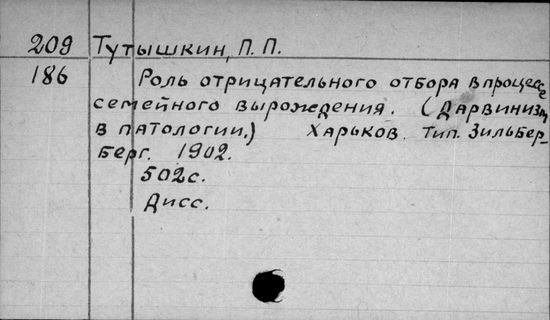 209 Тутышкин, П. П.
186 Роль отрицательного отбора в процессе
семейного вырождения. (Дарвинизм
в патологии.) Харьков. Тип. Зильбер-
берг. 1902.
502с.
Дисс.